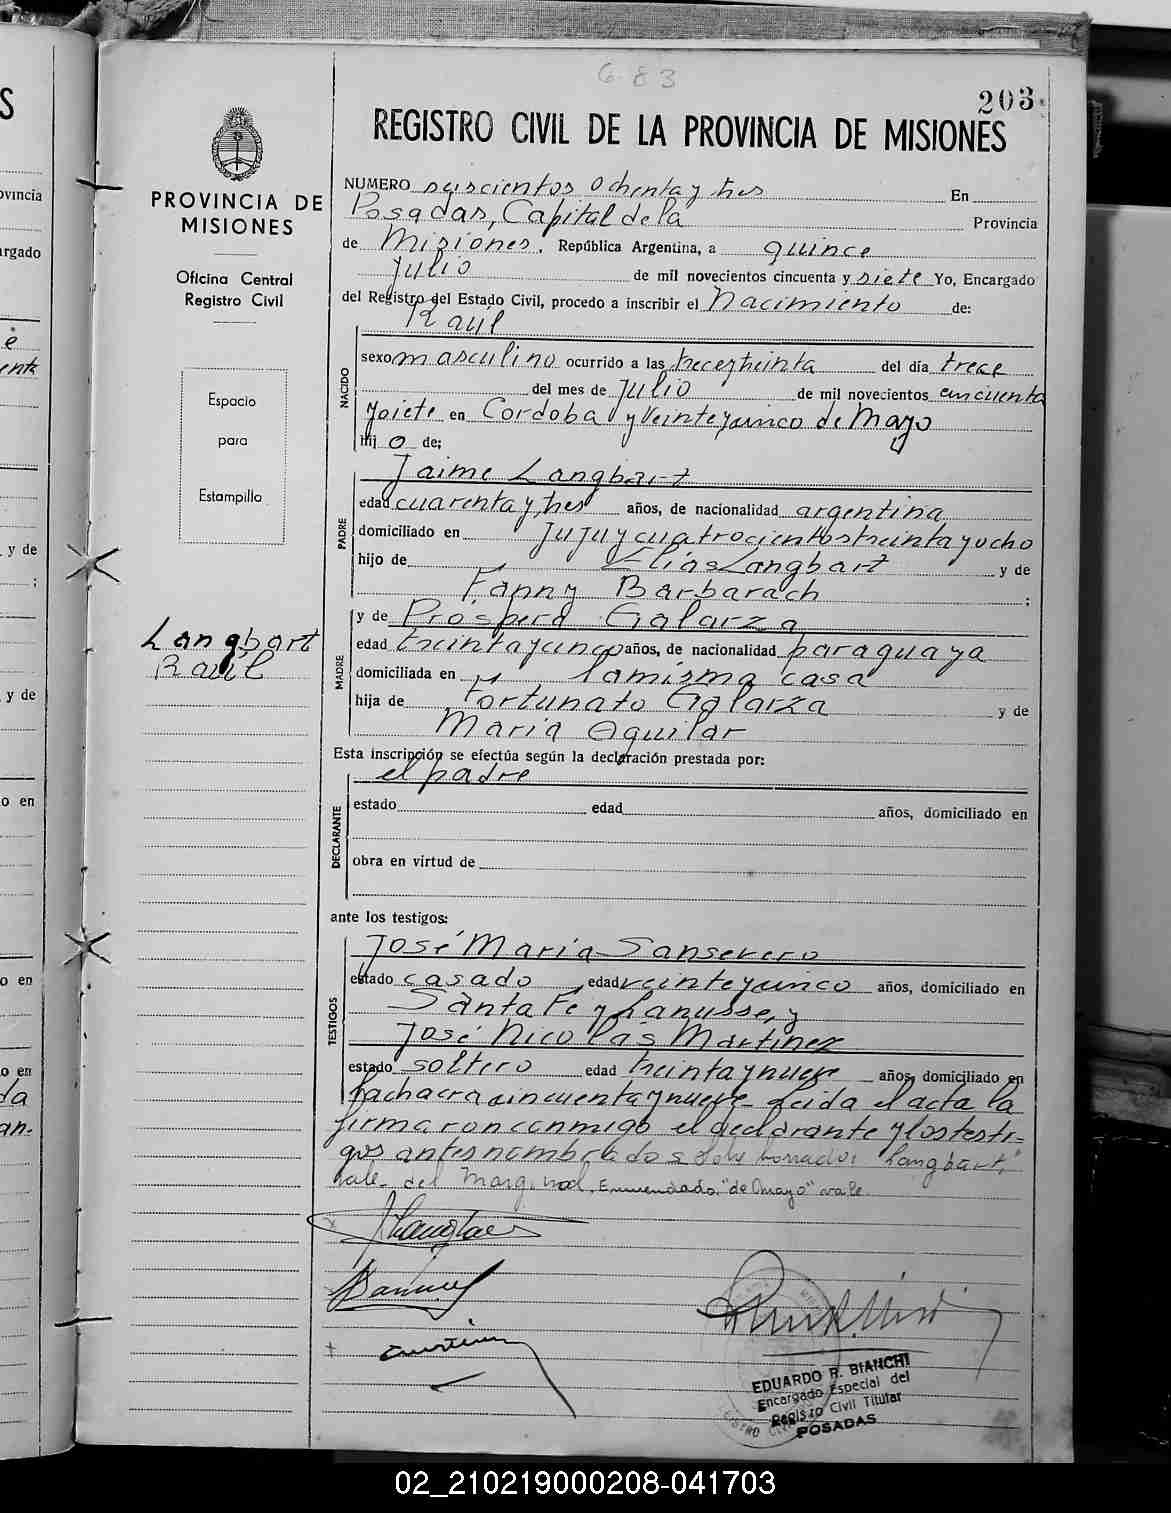 6.83
203
REGISTRO CIVIL DE LA PROVINCIA DE MISIONES
PROVINCIA DE
MISIONES
Oficina Central
Registro Civil
Espacio
para
Estampilla
Langbart
Raúl
NUMERO seiscientos ochenta y tres En
Posadas, Capital de la Provincia
de Misiones, República Argentina, a quince
Julio de mil novecientos cincuenta y siete Yo, Encargado
del Registro del Estado Civil, procedo a inscribir el Nacimiento de:
Raúl
NACIDO
sexo masculino ocurrido a las trece y treinta del día trece
del mes de Julio de mil novecientos cincuenta
y siete en Cordoba y Veinteycinco de Mayo
hij o de;
PADRE
Jaime Langbart
edad cuarenta y tres años, de nacionalidad argentina
domiciliado en Jujuy cuatrocientos treinta y ocho
hijo de Elías Langbart y de
Fanny Barbarach ;
MADRE
y de Próspera Galarza
edad treinta y cinco años, de nacionalidad paraguaya
domiciliada en la misma casa
hija de Fortunato Galarza y de
María Aguilar
Esta inscripción se efectúa según la declaración prestada por:
el padre
DECLARANTE
estado edad años, domiciliado en
obra en virtud de
ante los testigos:
TESTIGOS
José María Sanseverro
estado casado edad veinteycinco años, domiciliado en
Santa Fe y Lanusse, y
José Nicolás Martinez
estado soltero edad treinta y nueve años, domiciliado en
la chacra cincuenta y nueve leida el acta la
firmaron conmigo el declarante y los testi-
gos antes nombrados Sobre borrado: "Langbart"
vale. del Marginal, Enmendado: "de Mayo" vale.
EDUARDO R. BIANCHI
Encargado Especial del
Registro Civil Titular
POSADAS
02_210219000208-041703